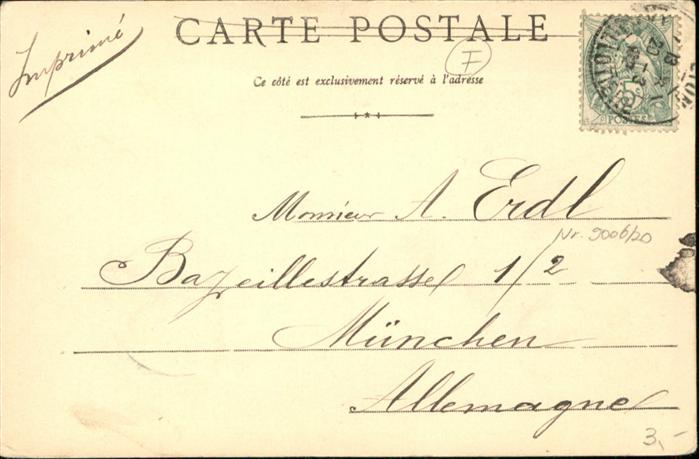 Imprimé
CARTE POSTALE
F
Ce côté est exclusivement réservé à l'adresse
POSTES
Monsieur A. Erdl
Nr. 9006/20
Bazeillestrasse 1/2
München
Allemagne
3,-